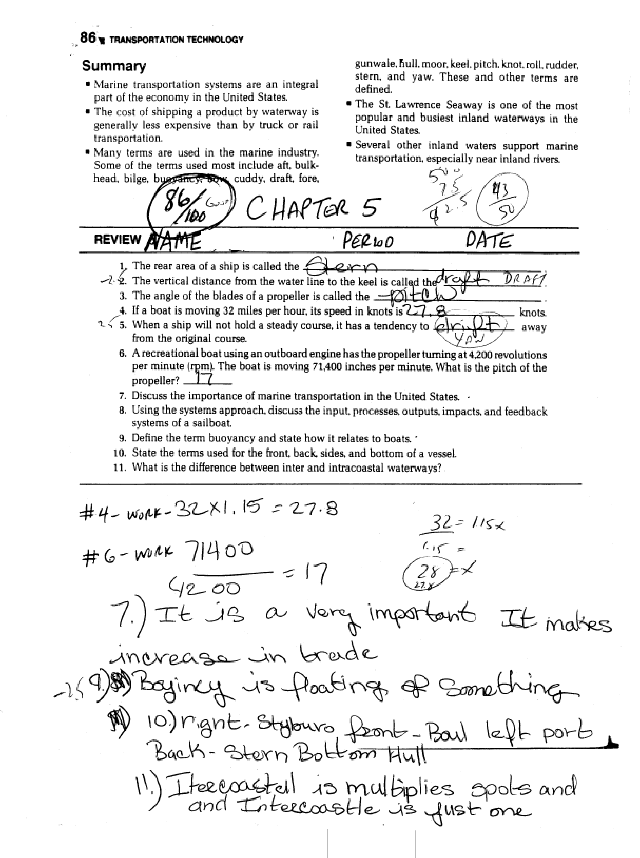 86 TRANSPORTATION TECHNOLOGY
Summary
▪ Marine transportation systems are an integral
part of the economy in the United States.
▪ The cost of shipping a product by waterway is
generally less expensive than by truck or rail
transportation.
▪ Many terms are used in the marine industry.
Some of the terms used most include aft, bulk-
head, bilge, buoyancy, bow, cuddy, draft, fore,
gunwale, hull, moor, keel, pitch, knot, roll, rudder,
stern, and yaw. These and other terms are
defined.
▪ The St. Lawrence Seaway is one of the most
popular and busiest inland waterways in the
United States.
▪ Several other inland waters support marine
transportation, especially near inland rivers.
86/100 Good
CHAPTER 5
43/50
REVIEW NAME PERIOD DATE
1. The rear area of a ship is called the Stern
2. The vertical distance from the water line to the keel is called the draft DRAFT
3. The angle of the blades of a propeller is called the pitch
4. If a boat is moving 32 miles per hour, its speed in knots is 27.8 knots.
5. When a ship will not hold a steady course, it has a tendency to drift away
from the original course. YAW
6. A recreational boat using an outboard engine has the propeller turning at 4,200 revolutions
per minute (rpm). The boat is moving 71,400 inches per minute. What is the pitch of the
propeller? 17
7. Discuss the importance of marine transportation in the United States.
8. Using the systems approach, discuss the input, processes, outputs, impacts, and feedback
systems of a sailboat.
9. Define the term buoyancy and state how it relates to boats.
10. State the terms used for the front, back, sides, and bottom of a vessel.
11. What is the difference between inter and intracoastal waterways?
#4 - WORK - 32 X 1.15 = 27.8
32 = 1.15x
1.15 =
28 = x
27.8
#6 - WORK 71400
4200 = 17
7.) It is a very important It makes
increase in trade
-2.5 9.) Boyincy is floating of Something
10.) right - Styburo front - Baul left port
Back - Stern Bottom Hull
11.) Itercoastell is multiplies spots and
and Intercoastle is just one